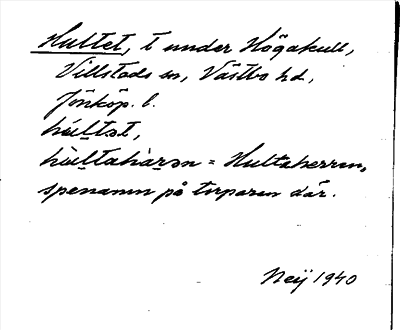 Hultet, t under Högakull,
Villstads sn, Västbo hd,
Jönköp. l.
húltət,
hùltahàrən = Hultaherrn,
spenamn på torparen där.
Neij 1940